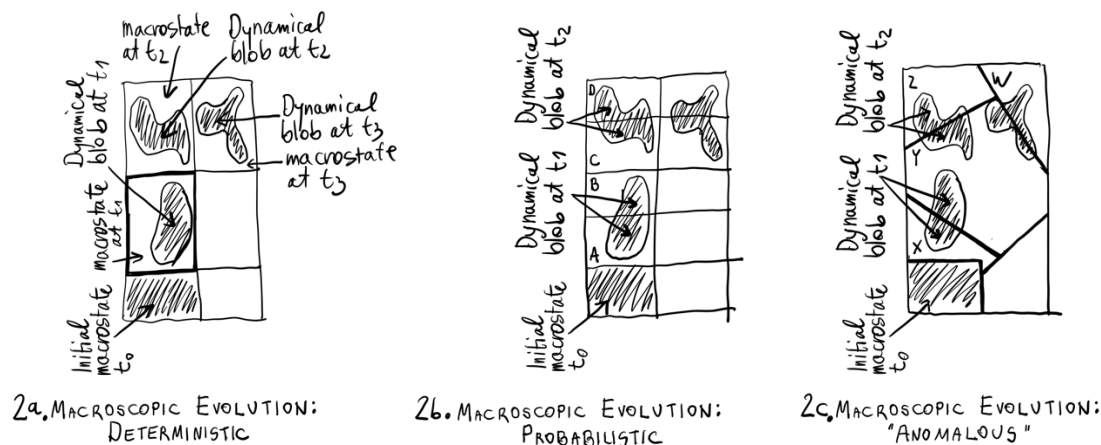 macrostate
at t₂
Dynamical
blob at t₂
Dynamical
blob at t₁
Dynamical
blob at t₃
macrostate
at t₃
macrostate
at t₁
Initial
macrostate
t₀
2a. MACROSCOPIC EVOLUTION:
DETERMINISTIC
Dynamical
blob at t₂
Dynamical
blob at t₁
Initial
macrostate
t₀
D
C
B
A
2b. MACROSCOPIC EVOLUTION:
PROBABILISTIC
Dynamical
blob at t₂
Dynamical
blob at t₁
Initial
macrostate
t₀
Z
W
Y
X
2c. MACROSCOPIC EVOLUTION:
"ANOMALOUS"